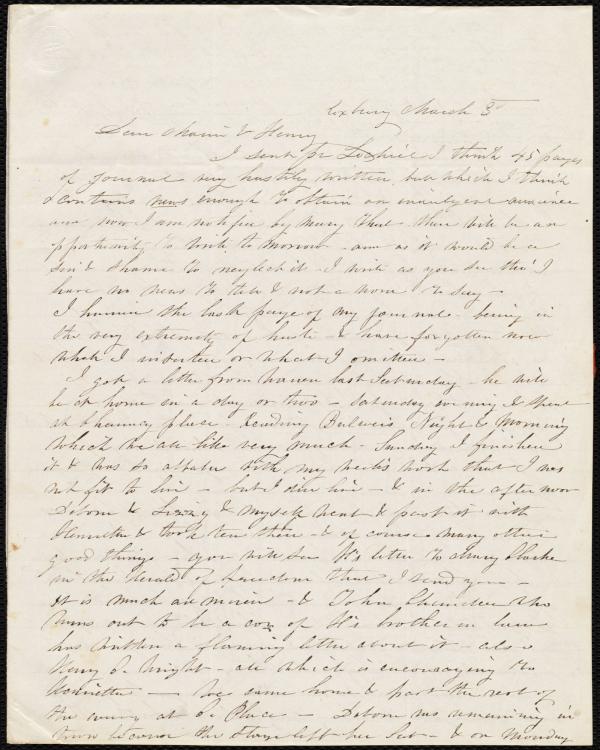 Roxbury March 3d
Dear Maria & Henry
I sent pr I think 45 pages
of Journal very hastily written but which I think
contains news enough to obtain an
and now I am notified by Mary that there will be an
opportunity to write to morrow and as it would be a
sin & shame to neglect it I write as you see tho' I
have no news to tell & not a word to say -
I hurried the last page of my journal being in
the very extremity of haste & have forgotten now
what I inserted or what I omitted -
I got a letter from last Saturday - he will
be at home in a day or two - Saturday evening I spent
at Chauncy place Reading Bulwer's Night & Morning
which we all like very much - Sunday I finished
it & was so with my week's work that I was
not fit to live - but I did live - & in the after noon
Debora & Lizzy & myself went & past it with
Henrietta & took tea there - & of course many other
good things - you will see H's letter to
in the Herald of freedom that I send you -
It is much admired - & John who
turns out to be a coz of H's brother in law
has written a flaming letter about it - also
Henry C. Wright - all which is encouraging to
Henrietta - We came home & past the rest of
the evening at C. Place - Debora was remaining in
town because the stage left her Sat - & on Monday